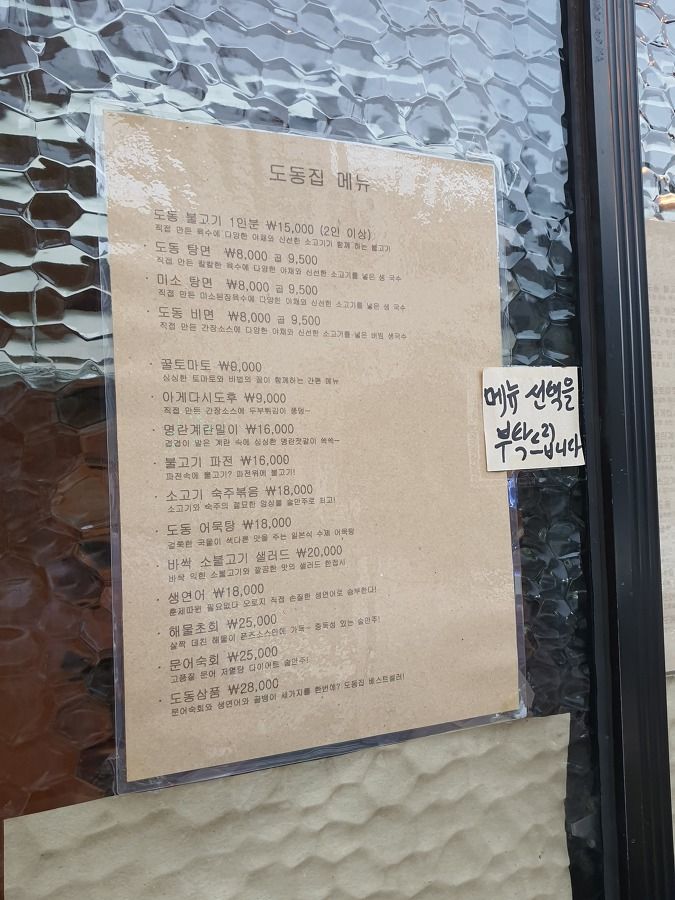 도동집 메뉴
도동 불고기 1인분 ₩15,000 (2인 이상)
직접 만든 육수에 다양한 야채와 신선한 소고기가 함께 하는 불고기
· 도동 탕면 ₩8,000 곱 9,500
직접 만든 칼칼한 육수에 다양한 야채와 신선한 소고기를 넣은 생 국수
· 미소 탕면 ₩8,000 곱 9,500
직접 만든 미소된장육수에 다양한 야채와 신선한 소고기를 넣은 생 국수
· 도동 비면 ₩8,000 곱 9,500
직접 만든 간장소스에 다양한 야채와 신선한 소고기를 넣은 비빔 생국수
· 꿀토마토 ₩9,000
싱싱한 토마토와 바법의 꿀이 함께하는 간편 메뉴
· 아게다시도후 ₩9,000
직접 만든 간장소스에 두부튀김이 퐁당~
· 명란계란말이 ₩16,000
겹겹이 말은 계란 속에 싱싱한 명란젓갈이 쏙쏙~
· 불고기 파전 ₩16,000
파전속에 불고기? 파전위에 불고기!
· 소고기 숙주볶음 ₩18,000
소고기와 숙주의 절묘한 앙상블 술안주로 최고!
· 도동 어묵탕 ₩18,000
걸쭉한 국물이 색다른 맛을 주는 일본식 수제 어묵탕
· 바싹 소불고기 샐러드 ₩20,000
바싹 익힌 소불고기와 깔끔한 맛의 샐러드 한접시
· 생연어 ₩18,000
훈제따윈 필요없다 오로지 직접 손질한 생연어로 승부한다!
· 해물초회 ₩25,000
살짝 데친 해물이 폰즈소스안에 가득~ 중독성 있는 술안주!
· 문어숙회 ₩25,000
고품질 문어 저열량 다이어트 술안주!
· 도동삼품 ₩28,000
문어숙회와 생연어와 골뱅이 세가지를 한번에? 도동집 베스트셀러!
메뉴 선택을
부탁드립니다